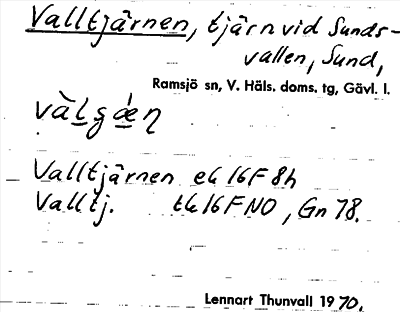 Valltjärnen, tjärn vid Sunds-
vallen, Sund,
Ramsjö sn, V. Häls. doms. tg, Gävl. l.
Valltjärnen ek 16F 8h
Valltj. tk 16F NO, Gn 78.
Lennart Thunvall 1970.